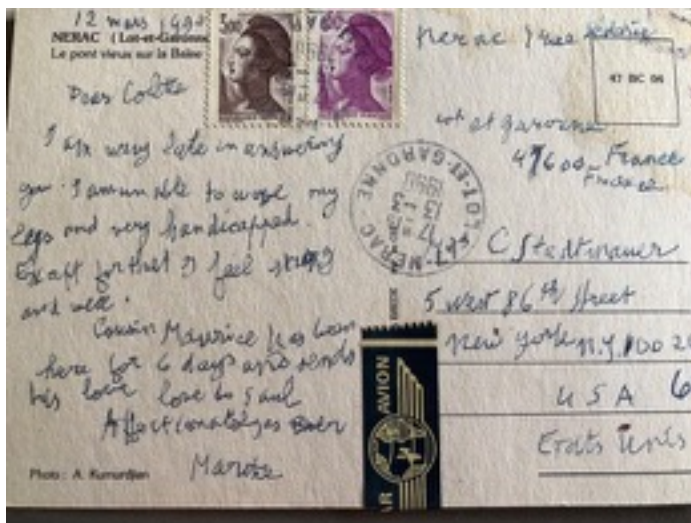 12 mars 1990
NERAC (Lot-et-Garonne
Le pont vieux sur la Baïse
Dear Colette
I am very late in answering
you. I am unable to my
legs and very handicapped.
Except for that I feel strong
and well.
Cousin Maurice has been
here for 6 days and sends
his love love to Saul
Affectionately as
Photo : A. Kumurdjian
Nerac
47 BC 06
Lot et garonne
47600 France
NERAC LOT-ET-GARONNE
C Stadtmauer
5 West 86th Street
New York N.Y. 1002
6
USA
Etats Unis
AR AVION